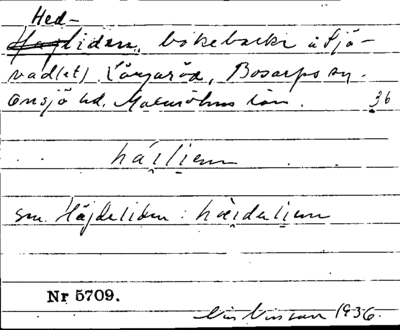 Hed-
Hagliden, bökebacke å Sjö-
vad(et) Långaröd, Bosarps sn.
Onsjö hd. Malmöhus län. 36
häiliem
sm. Höjdeliden : häideliem
Nr 5709.
1936.